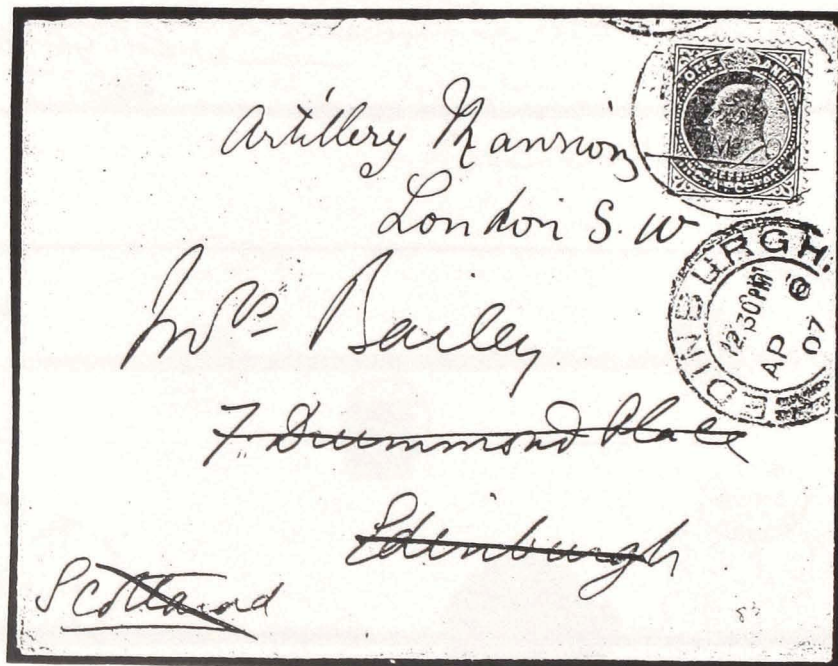 ONE ANNA
Artillery Mansions
London S.W
EDINBURGH
12.30 PM
AP
07
Mrs Bailey
7. Drummond Place
Edinburgh
Scotland